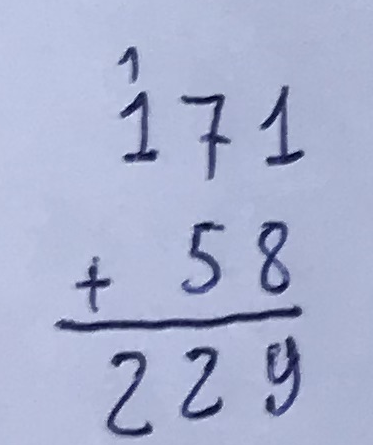 1
171
+ 58
229